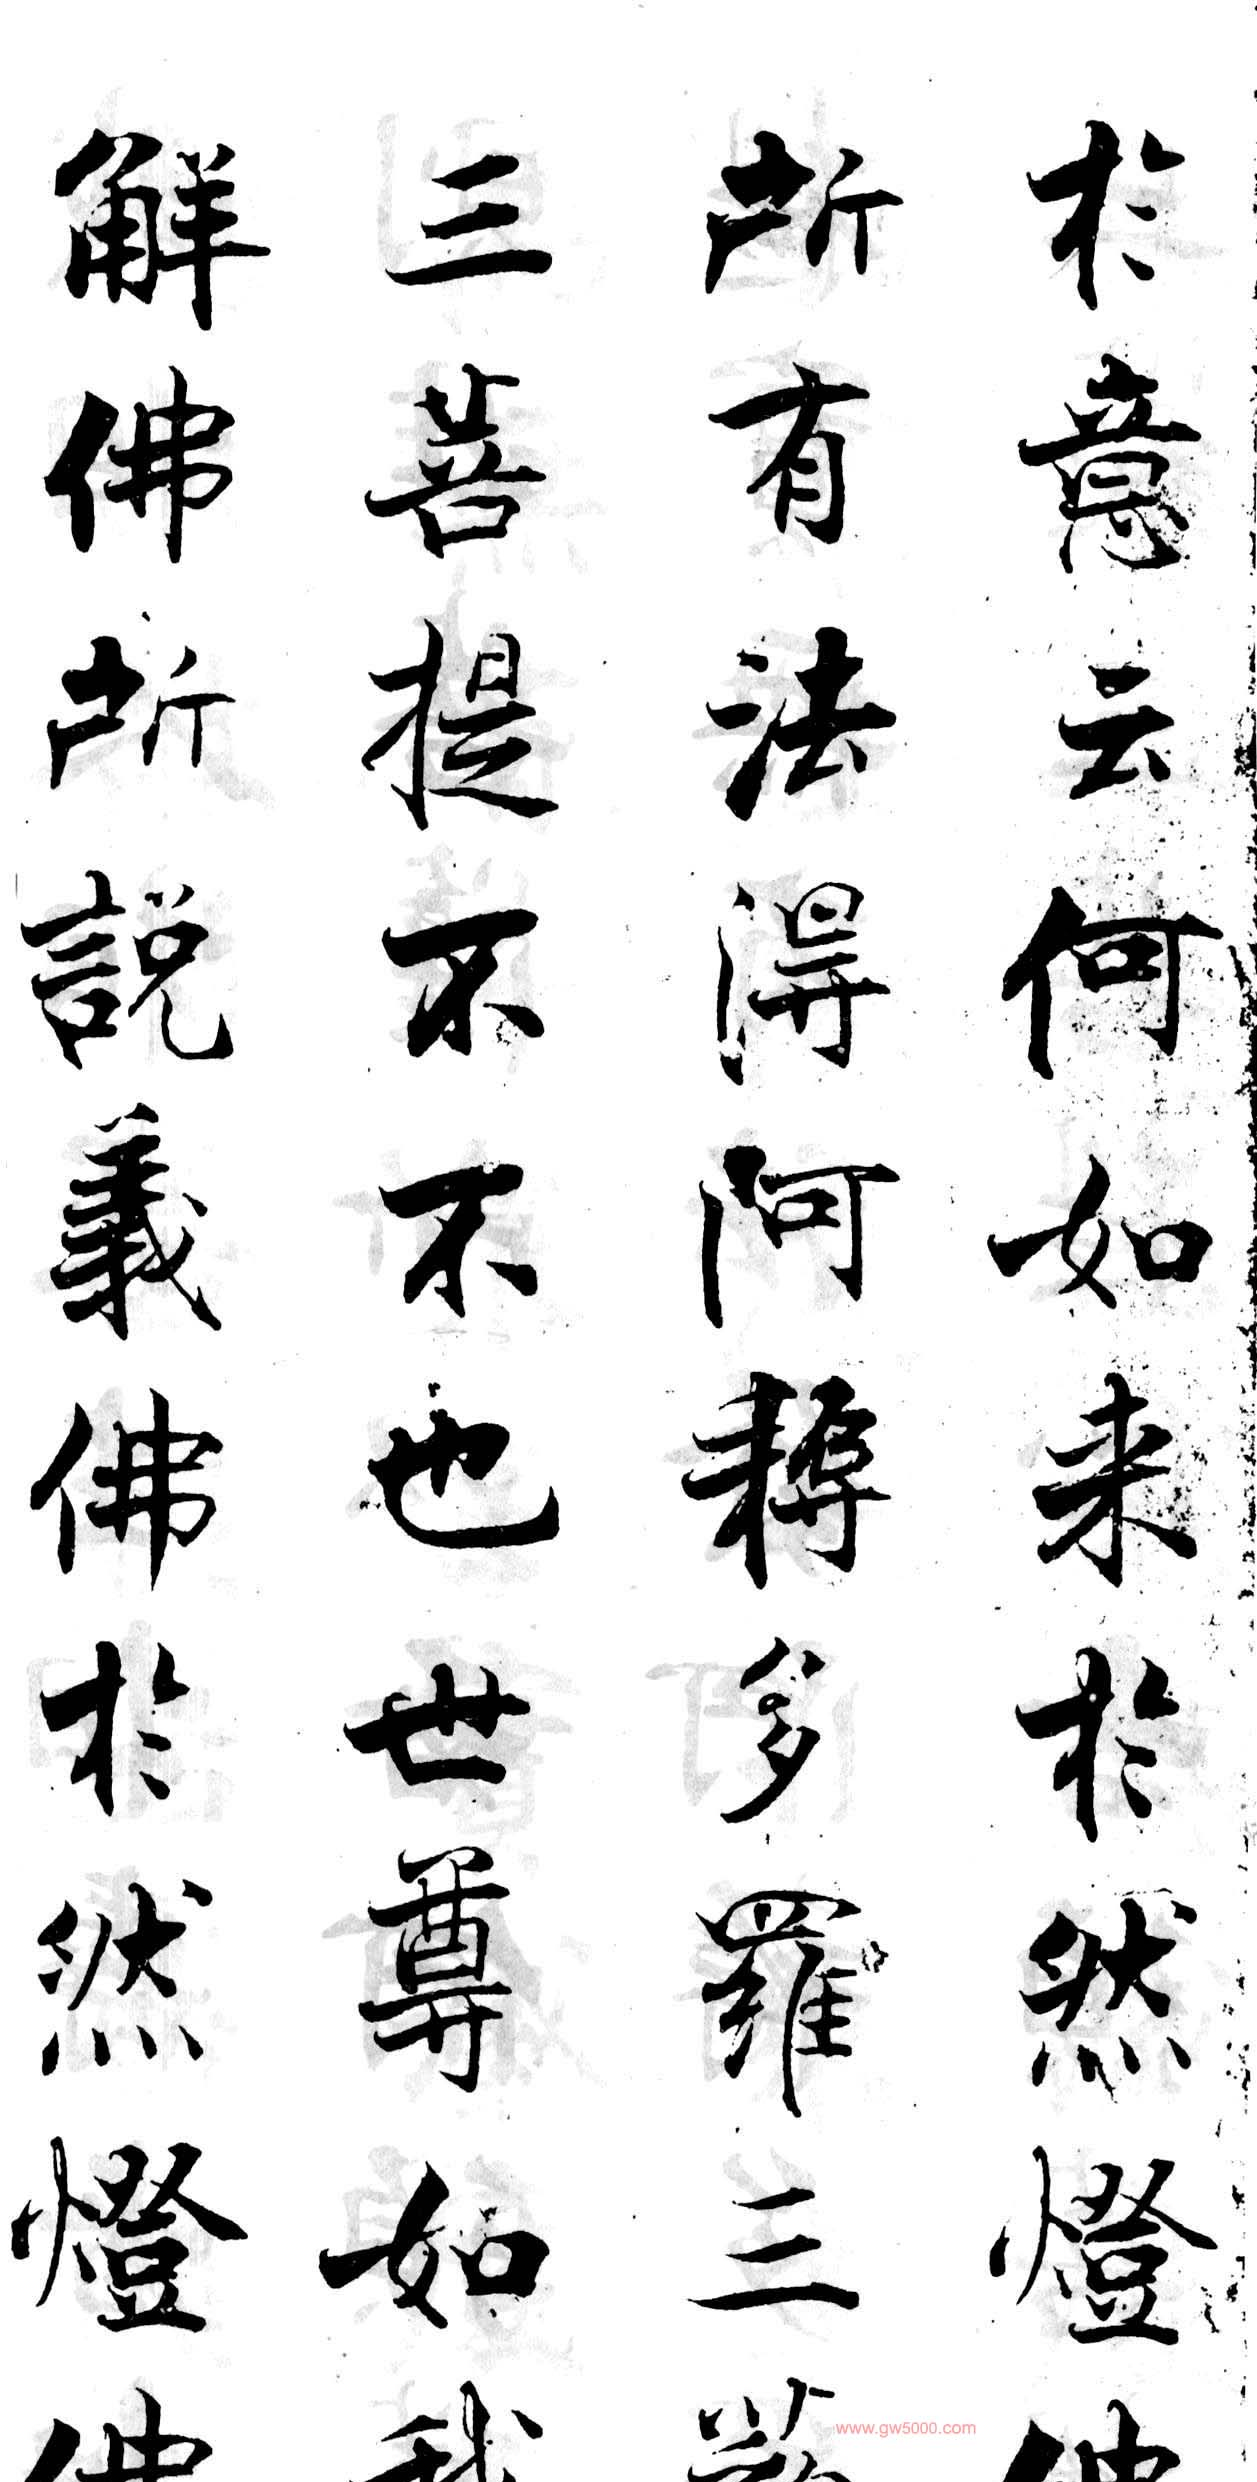 於意云何如来於然燈佛
所有法得阿耨多羅三藐
三菩提不不也世尊如我
解佛所說義佛於然燈佛
www.gw5000.com